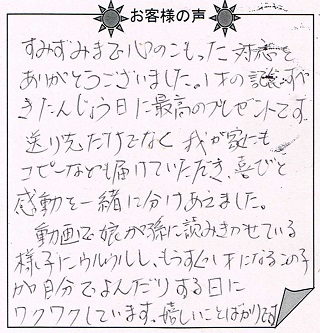 お客様の声
すみずみまで心のこもった対応を
ありがとうございました。1才の記念すべ
きたんじょう日に最高のプレゼントです。
送り先だけでなく 我が家にも
コピーなども届けていただき、喜びと
感動を一緒に分けあえました。
動画で娘が孫に読みきかせている
様子にウルウルし、もうすぐ1才になるこの子
が自分でよんだりする日に
ワクワクしています。嬉しいことばかりです